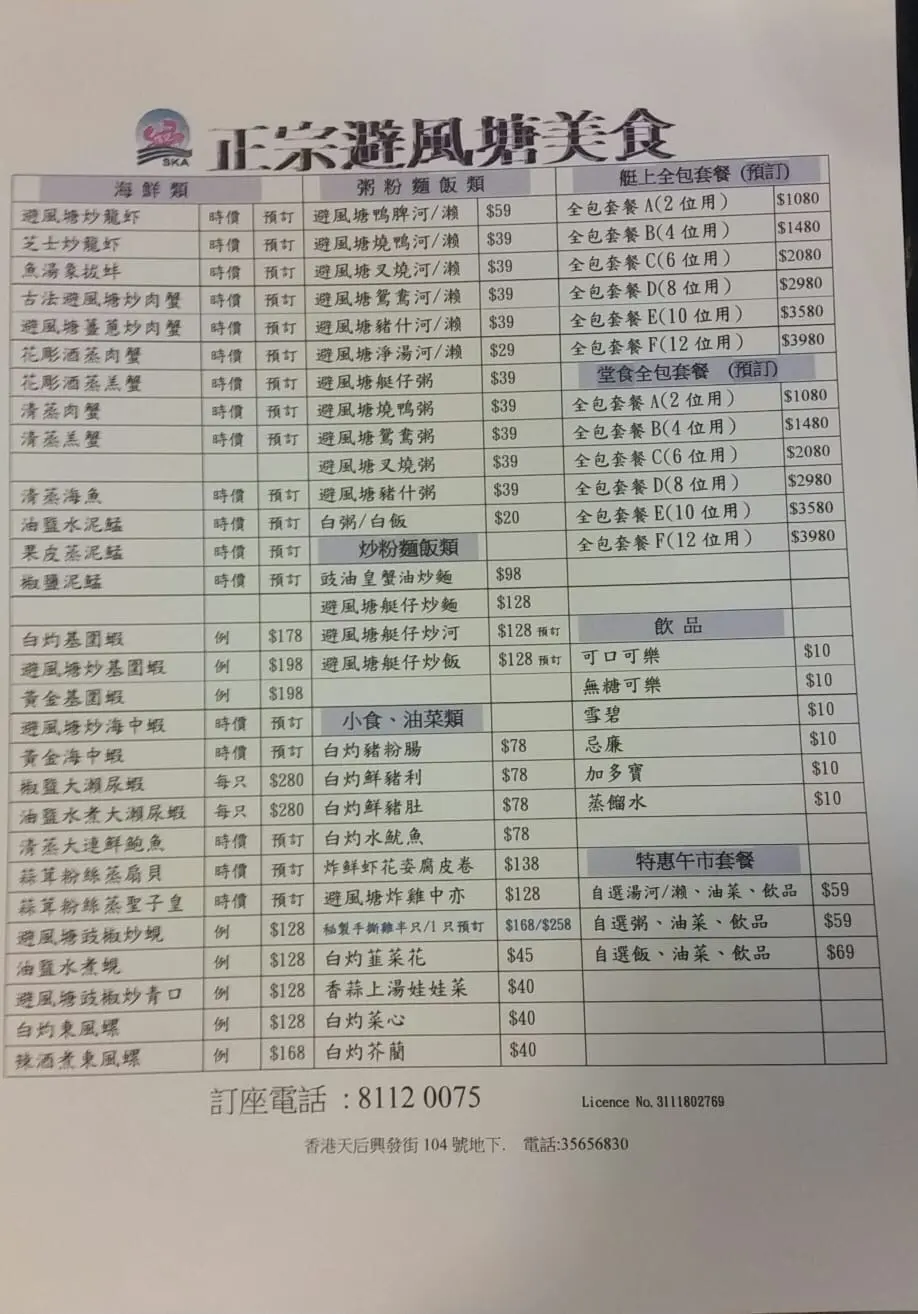 SKA
正宗避風塘美食
海鮮類
避風塘炒龍虾 時價 預訂
芝士炒龍虾 時價 預訂
魚湯象拔蚌 時價 預訂
古法避風塘炒肉蟹 時價 預訂
避風塘薑蔥炒肉蟹 時價 預訂
花彫酒蒸肉蟹 時價 預訂
花彫酒蒸羔蟹 時價 預訂
清蒸肉蟹 時價 預訂
清蒸羔蟹 時價 預訂
清蒸海魚 時價 預訂
油鹽水泥鯭 時價 預訂
果皮蒸泥鯭 時價 預訂
椒鹽泥鯭 時價 預訂
白灼基圍蝦 例 $178
避風塘炒基圍蝦 例 $198
黃金基圍蝦 例 $198
避風塘炒海中蝦 時價 預訂
黃金海中蝦 時價 預訂
椒鹽大瀨尿蝦 每只 $280
油鹽水煮大瀨尿蝦 每只 $280
清蒸大連鮮鮑魚 時價 預訂
蒜茸粉絲蒸扇貝 時價 預訂
蒜茸粉絲蒸聖子皇 時價 預訂
避風塘豉椒炒蜆 例 $128
油鹽水煮蜆 例 $128
避風塘豉椒炒青口 例 $128
白灼東風螺 例 $128
辣酒煮東風螺 例 $168
粥粉麵飯類
避風塘鴨脾河/瀨 $59
避風塘燒鴨河/瀨 $39
避風塘叉燒河/瀨 $39
避風塘鴛鴦河/瀨 $39
避風塘豬什河/瀨 $39
避風塘淨湯河/瀨 $29
避風塘艇仔粥 $39
避風塘燒鴨粥 $39
避風塘鴛鴦粥 $39
避風塘叉燒粥 $39
避風塘豬什粥 $39
白粥/白飯 $20
炒粉麵飯類
豉油皇蟹油炒麵 $98
避風塘艇仔炒麵 $128
避風塘艇仔炒河 $128 預訂
避風塘艇仔炒飯 $128 預訂
小食、油菜類
白灼豬粉腸 $78
白灼鮮豬利 $78
白灼鮮豬肚 $78
白灼水魷魚 $78
炸鮮虾花姿腐皮卷 $138
避風塘炸雞中亦 $128
秘製手撕雞半只/1只預訂 $168/$258
白灼韮菜花 $45
香蒜上湯娃娃菜 $40
白灼菜心 $40
白灼芥蘭 $40
艇上全包套餐 (預訂)
全包套餐 A(2 位用) $1080
全包套餐 B(4 位用) $1480
全包套餐 C(6 位用) $2080
全包套餐 D(8 位用) $2980
全包套餐 E(10 位用) $3580
全包套餐 F(12 位用) $3980
堂食全包套餐 (預訂)
全包套餐 A(2 位用) $1080
全包套餐 B(4 位用) $1480
全包套餐 C(6 位用) $2080
全包套餐 D(8 位用) $2980
全包套餐 E(10 位用) $3580
全包套餐 F(12 位用) $3980
飲品
可口可樂 $10
無糖可樂 $10
雪碧 $10
忌廉 $10
加多寶 $10
蒸餾水 $10
特惠午市套餐
自選湯河/瀨、油菜、飲品 $59
自選粥、油菜、飲品 $59
自選飯、油菜、飲品 $69
訂座電話 : 8112 0075
Licence No. 3111802769
香港天后興發街 104 號地下. 電話:35656830